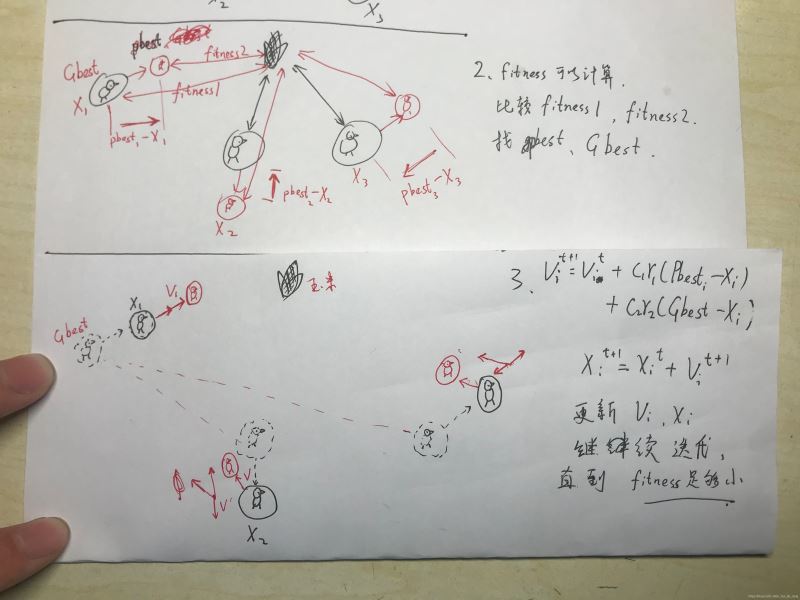 X₂
X₃
pbest
Gbest
fitness2
X₁
fitness1
pbest₁-X₁
X₃
pbest₂-X₂
pbest₃-X₃
X₂
2、fitness 可以计算.
比较 fitness1, fitness2.
找 pbest、Gbest.
玉米
X₁
V₁
Gbest
V
V'
X₂
3、Vᵢᵗ⁺¹=Vᵢᵗ + C₁r₁(Pbestᵢ-Xᵢ)
+ C₂r₂(Gbest-Xᵢ)
Xᵢᵗ⁺¹=Xᵢᵗ+Vᵢᵗ⁺¹
更新 Vᵢ, Xᵢ
继续迭代,
直到 fitness足够小.